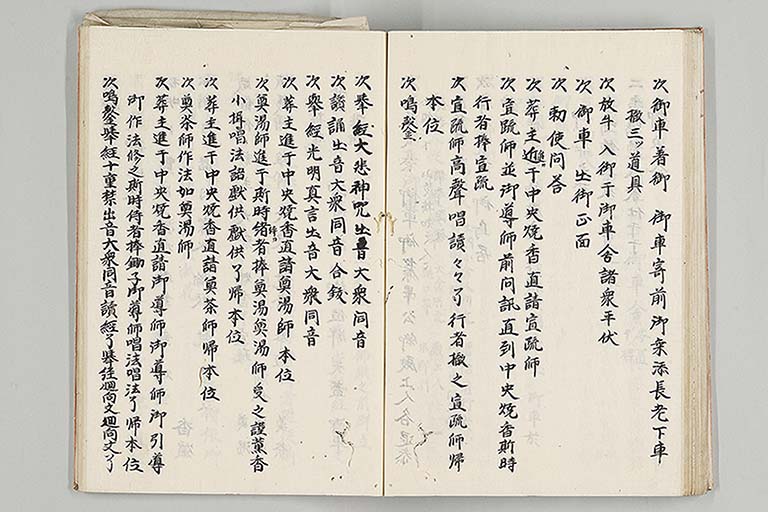 次御車着御 御車寄前御案添長老下車
撤三ッ道具
次放牛 入御于御車舎諸衆平伏
次御車 出御正面
次 勅使問答
次葬主進于中央焼香直請宣疏師
次宣疏師並御導師前问訊直到中央焼香斯時
行者捧宣疏
次宣疏師高聲唱讀々々了行者撤之宣疏師帰
本位
次鳴鏧
次挙経大悲神咒出音大衆同音
次讀誦出音大衆同音合鈸
次挙経光明真言出音大衆同音
次葬主進于中央焼香直請奠湯師 本位
次奠湯師進于斯時緒者捧奠湯奠湯師受之謹薫香
小揖唱法語獻供獻供了帰本位
次葬主進于中央焼香直請奠茶師帰本位
次奠茶師作法如奠湯師
次葬主進于中央焼香直請御導師御導師御引導
御作法修之斯時侍者捧鋤子御導師唱法唱法了帰本位
次鳴鏧挙経十重禁出音大衆同音讀経了挙経廻向文廻向文了